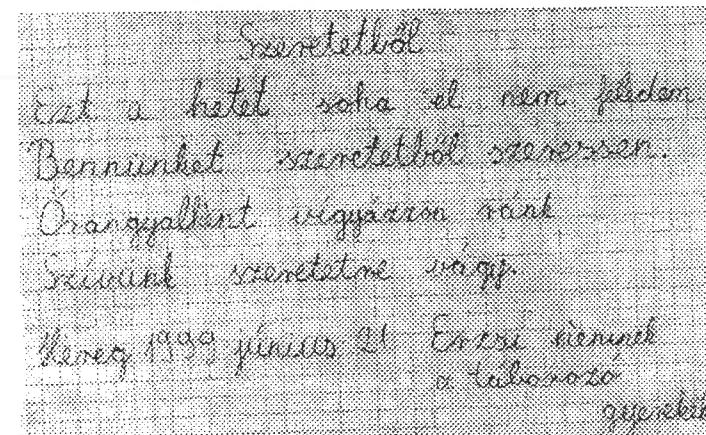 Szeretetből
Ezt a hetet soha el nem feledem
Bennünket szeretetből szeressen.
Őrangyalként vigyázzon ránk
Szívünk szeretetre vágy.
Héreg 1999 június 21 Erzsi néninek
a táborozó
gyerekek